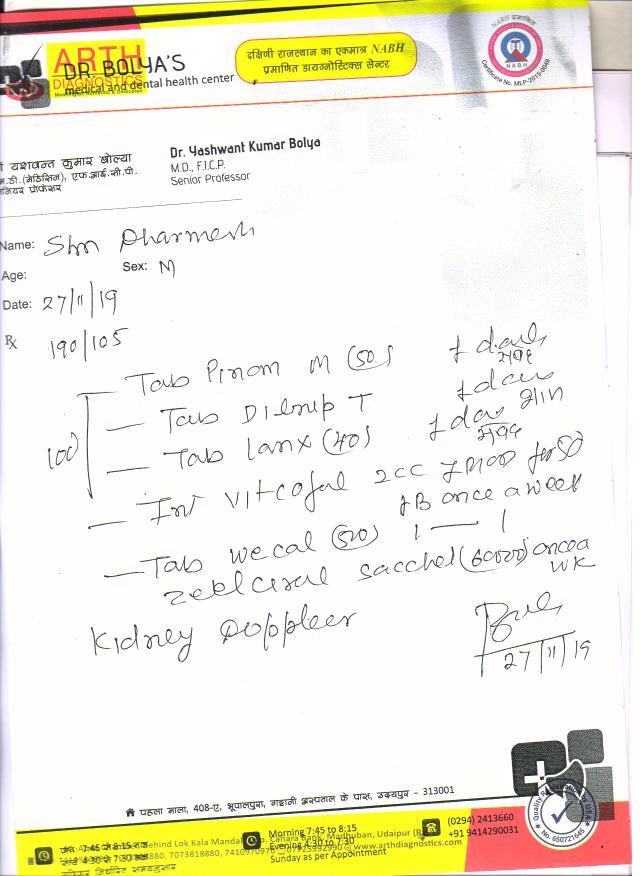 ARTH
DIAGNOSTICS
DR. BOLYA'S
medical and dental health center
दक्षिणी राजस्थान का एकमात्र NABH
प्रमाणित डायग्नोस्टिक्स सेन्टर
NABH प्रमाणित
NABH
Certificate No. MLP-2015-0048
यशवन्त कुमार बोल्या
डी.(मेडिसिन), एफ.आई.सी.पी.
नियर प्रोफेसर
Dr. Yashwant Kumar Bolya
M.D., F.I.C.P.
Senior Professor
Name: Shri Dharmesh
Age: Sex: M
Date: 27/11/19
Rx 190/105
Tab Pinom M (50) 1 daily
100 Tab Dilnip T 1 daily
शाम
Tab Lanx (40) 1 daily
Inj Vitcofol 2cc
once a week
Tab wecal (500) 1 — 1
sacchet (60000) once a
wk
Kidney Doppler
27/11/19
पहला माला, 408-ए, भूपालपुरा, उदयपुर - 313001
7:45 से 8:15
Behind Lok Kala Mandal
Canara Bank, Madhuban, Udaipur
Morning 7:45 to 8:15
Evening 4:30 to 7:30
Sunday as per Appointment
7073818880
www.arthdiagnostics.com
(0294) 2413660
+91 9414290031